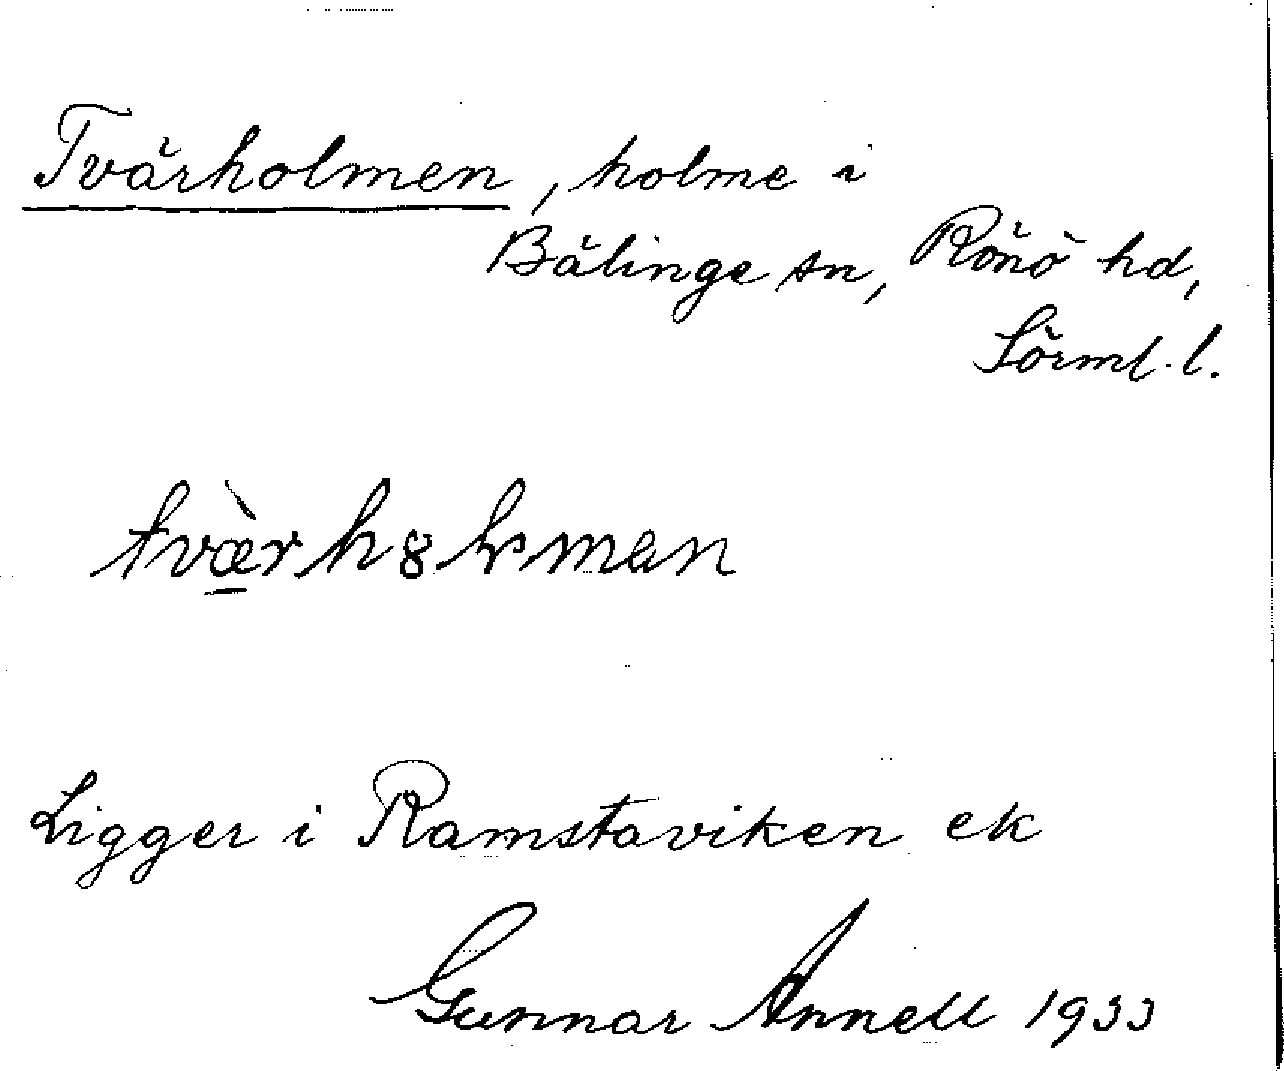 Tvärholmen, holme i
Bälinge sn, Rönö hd,
Sörml. l.
tvæ̠̀rh8lman
Ligger i Ramstaviken ek
Gunnar Annell 1933